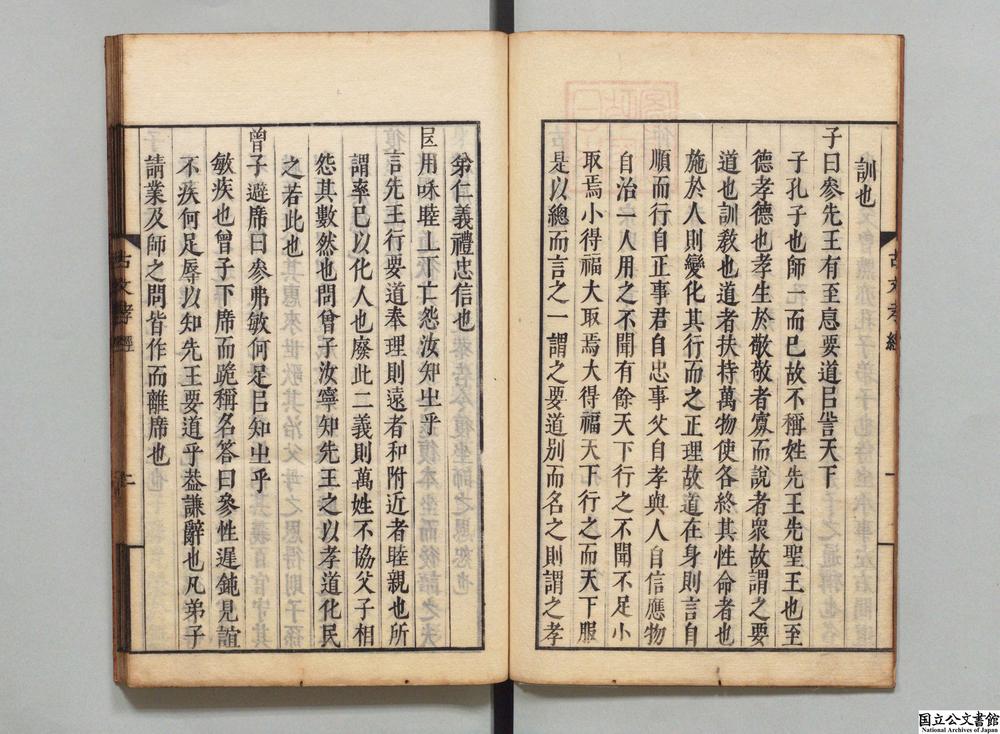 訓也
子曰參先王有至悳要道㠯訔天下
子孔子也師一而已故不稱姓先王先聖王也至
德孝德也孝生於敬敬者寡而說者衆故謂之要
道也訓敎也道者扶持萬物使各終其性命者也
施於人則變化其行而之正理故道在身則言自
順而行自正事君自忠事父自孝與人自信應物
自治一人用之不聞有餘天下行之不聞不足小
取焉小得福大取焉大得福天下行之而天下服
是以總而言之一謂之要道別而名之則謂之孝
弟仁義禮忠信也
民用咊睦丄丅亡怨汝知㞢乎
言先王行要道奉理則遠者和附近者睦親也所
謂率已以化人也廢此二義則萬姓不協父子相
怨其數然也問曾子汝寧知先王之以孝道化民
之若此也
曾子避席曰參弗敏何足㠯知㞢乎
敏疾也曾子下席而跪稱名答曰參性遲鈍見誼
不疾何足辱以知先王要道乎葢謙辭也凡弟子
請業及師之問皆作而離席也
古文孝經
一
古文孝經
二
国立公文書館
National Archives of Japan